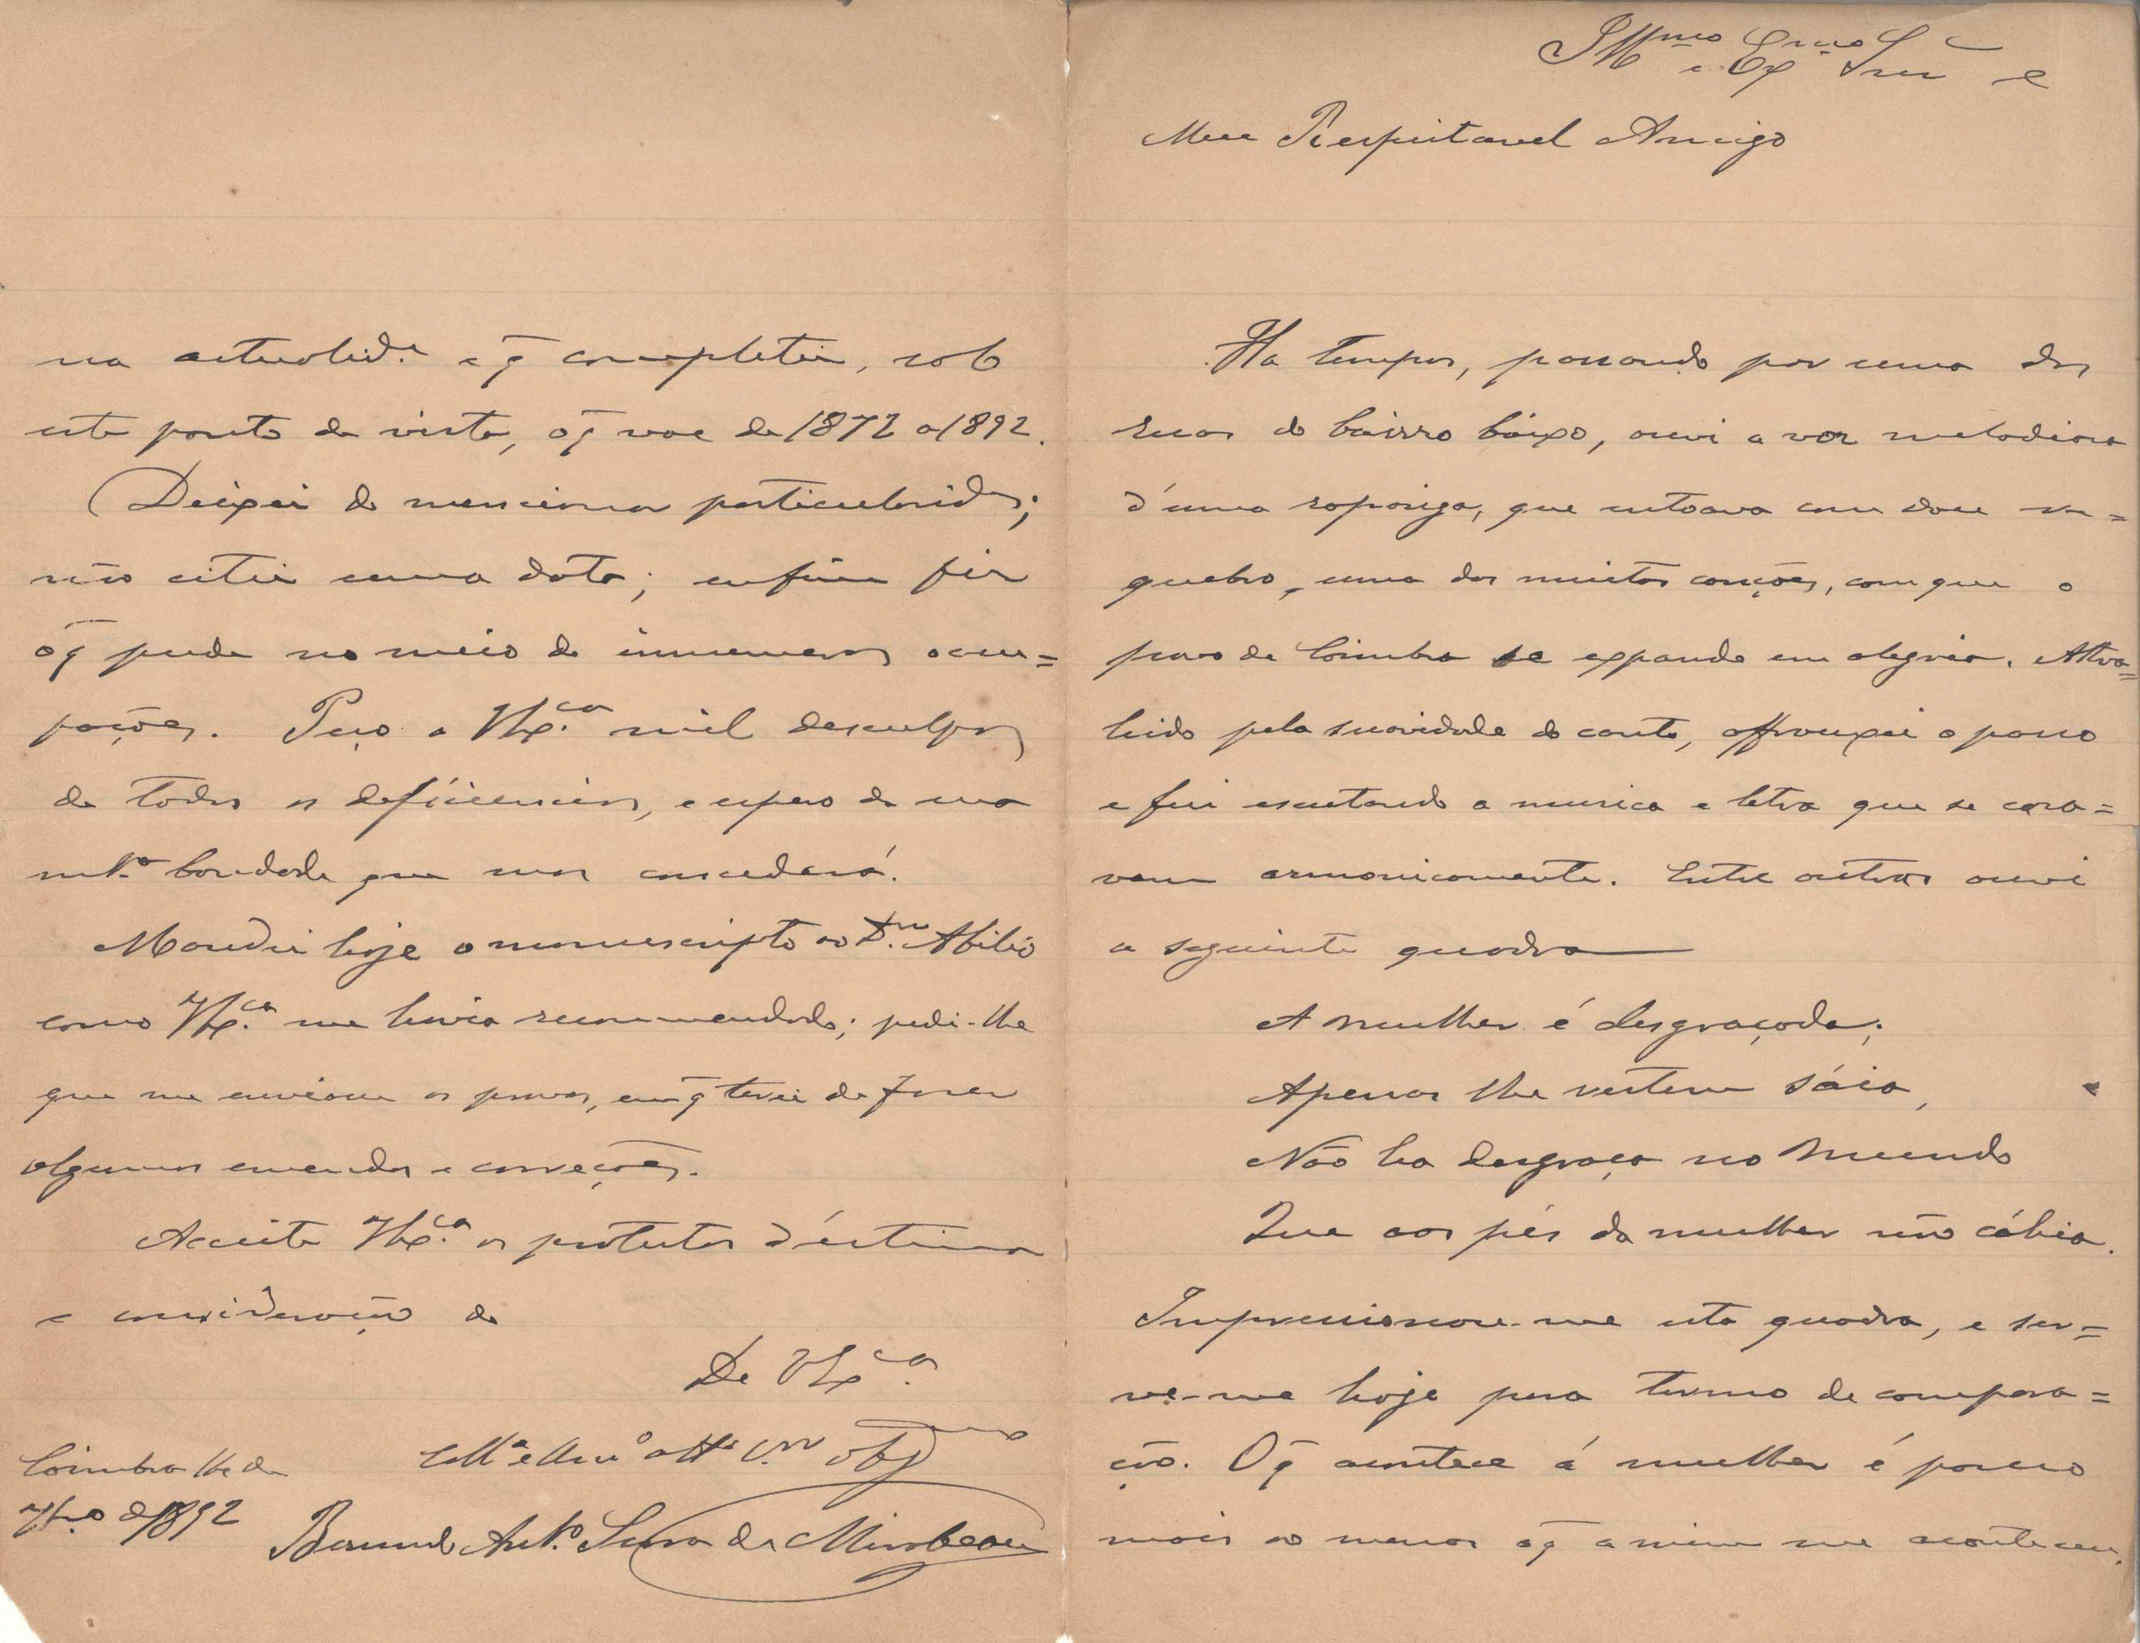 Ill.mo e Ex.mo Snr e
Meu Respeitavel Amigo
Ha tempos, passando por uma das
ruas do bairro baixo, ouvi a voz melodiosa
d'uma rapariga, que entoava com doce re=
quebro, uma das muitas canções, com que o
povo de Coimbra se expande em alegria. Attra=
hido pela suavidade do canto, affrouxei o passo
e fui escutando a musica e letra que se casa=
vam armonicamente. Entre outras ouvi
a seguinte quadra
A mulher é desgraçada;
Apenas lhe vestem sáia,
Não ha desgraça no mundo
Que aos pés da mulher não cáhia.
Impressionou-me esta quadra, e ser=
ve-me hoje para termo de compara=
ção. O q̄ acontece á mulher é pouco
mais ou menos o q̄ a mim me aconteceu,
na actualid.e e q̄ completei, sob
este ponto de vista, o q̄ vae de 1872 a 1892.
Deixei de mencionar particularid.es;
não citei uma data; enfim fiz
o q̄ pude no meio de innumeras occu=
pações. Peço a V.Ex.cia mil desculpas
de todas as deficiencias, e espero da sua
mt.a bondade que mas concederá.
Mandei hoje o manuscripto ao D.or Abilio
como V.Ex.cia me havia recommendado; pedi-lhe
que me enviasse as provas, em q̄ terei de fazer
algumas emendas e correcções.
Acceite V.Ex.cia os protestos d'estima
e consideração do
De V.Ex.cia
Coll.a e Am.o att.o V.or Obg.mo
Coimbra 16 de
7br.o de 1892
Bernardo Ant.o Serra de Mirabeau